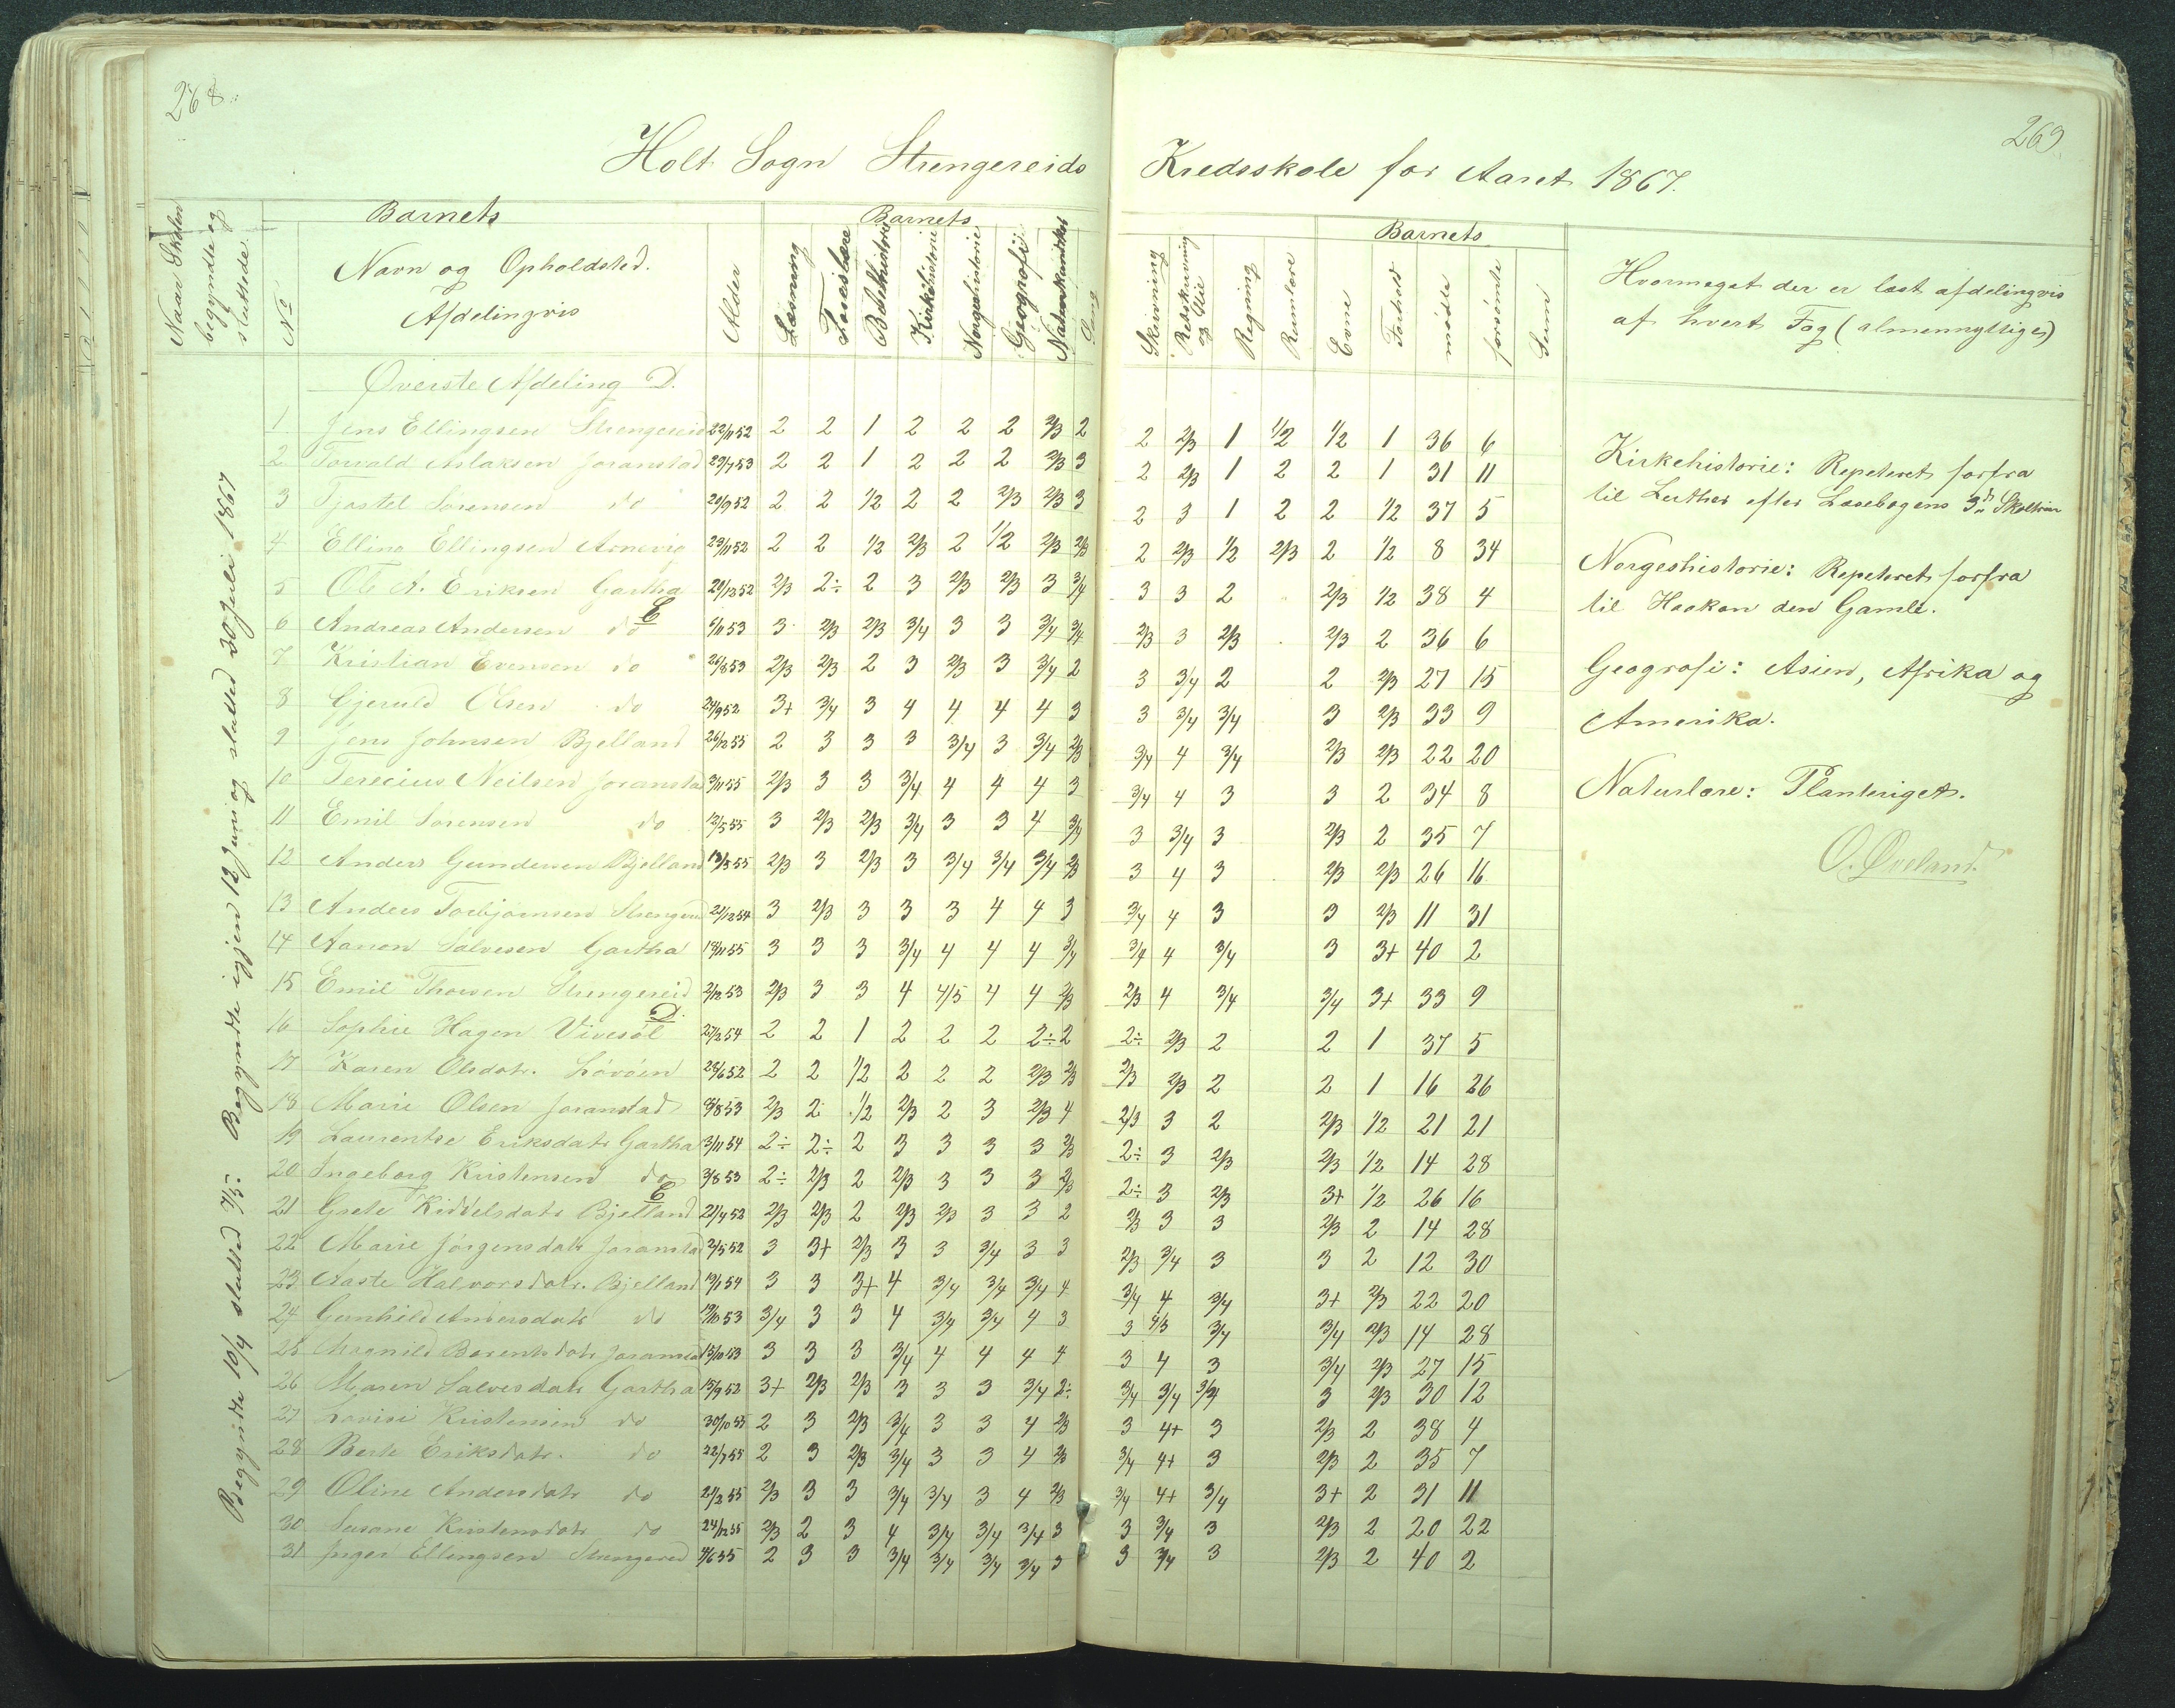 268.
Holt Sogn Strengereids
Naar Skolen begyndte og sluttede.
No
Barnets
Navn og Opholdsted.
Afdelingvis
Alder
Barnets
Læsning
Troeslære
Bibelhistorie
Kirkehistorie
Norgeshistorie
Geografi
Naturkundskab
Sang
Begyndte 10/4 slutted 7/5. Begyndte igjen 12 Juni og slutted 30 Juli 1867
Øverste Afdeling D.
1 Jens Ellingsen Strengereid 22/11 52 2 2 1 2 2 2 2/3 2
2 Torvald Aslaksen Joranstad 29/7 53 2 2 1 2 2 2 2/3 3
3 Tjostel Sørensen do 20/9 52 2 2 1/2 2 2 2/3 2/3 3
4 Elling Ellingsen Arnevig 23/11 52 2 2 1/2 2/3 2 1/2 2/3 2/3
5 Ole A. Eriksen Gartha 20/12 52 2/3 2÷ 2 3 2/3 2/3 3 3/4
E
6 Andreas Andersen do 6/11 53 3 2/3 2/3 3/4 3 3 3/4 3/4
7 Kristian Evensen do 26/8 53 2/3 2/3 2 3 2/3 3 3/4 2
8 Gjeruld Olsen do 24/9 52 3+ 3/4 3 4 4 4 4 3
9 Jens Johnsen Bjelland 26/12 55 2 3 3 3 3/4 3 3/4 2/3
10 Terecius Neilsen Joranstad 3/11 55 2/3 3 3 3/4 4 4 4 3
11 Emil Sørensen do 12/5 55 3 2/3 2/3 3/4 3 3 4 3/4
12 Anders Gundersen Bjelland 13/5 55 2/3 3 2/3 3 3/4 3/4 3/4 2/3
13 Anders Torbjørnsen Strengereid 21/12 54 3 2/3 3 3 3 4 4 3
14 Aanon Salvesen Gartha 19/11 55 3 3 3 3/4 4 4 4 3/4
15 Emil Thorsen Strengereid 2/12 53 2/3 3 3 4 4/5 4 4 2/3
D.
16 Sophie Hagen Vivesøl 27/2 54 2 2 1 2 2 2 2÷ 2
17 Karen Olsdatr. Løvøen 28/6 52 2 2 1/2 2 2 2 2/3 2/3
18 Marie Olsen Joranstad 8/8 53 2/3 2 1/2 2/3 2 3 2/3 4
19 Laurentse Eriksdatr Gartha 3/11 54 2÷ 2÷ 2 3 3 3 3 2/3
20 Ingeborg Kristensen do 3/8 53 2÷ 2/3 2 2/3 3 3 3 2/3
E
21 Grete Kiddelsdatr Bjelland 21/4 52 2/3 2/3 2 2/3 2/3 3 3 2
22 Marie Jørgensdatr Joranstad 2/5 52 3 3+ 2/3 3 3 3/4 3 3
23 Aaste Halvorsdatr. Bjelland 19/1 54 3 3 3+ 4 3/4 3/4 3/4 4
24 Gunhild Andersdatr do 19/10 53 3/4 3 3 4 3/4 3/4 4 3
25 Magnild Berentsdatr Joranstad 13/10 53 3 3 3 3/4 4 4 4 4
26 Maren Salvesdatr Gartha 15/9 52 3+ 2/3 2/3 3 3 3 3/4 2÷
27 Lovise Kristensen do 30/10 55 2 3 2/3 3/4 3 3 4 2/3
28 Berte Eriksdatr. do 22/7 55 2 3 2/3 3/4 3 3 4 2/3
29 Oline Andersdatr do 21/2 55 2/3 3 3 3/4 3/4 3 4 2/3
30 Susane Kristensdatr do 24/12 55 2/3 2 3 4 3/4 3/4 3/4 3
31 Inger Ellingsen Strengereid 9/6 55 2 3 3 3/4 3/4 3/4 3/4 3
269.
Kredsskole for Aaret 1867.
Skrivning
Retskrivning og Stil
Regning
Rumlære
Barnets
Evne
Forhold
mødte
forsømte
Sum
Hvormeget der er læst afdelingvis
af hvert Fag (almennyttige)
2 2/3 1 1/2 1/2 1 36 6
2 2/3 1 2 2 1 31 11
2 3 1 2 2 1/2 37 5
2 2/3 1/2 2/3 2 1/2 8 34
3 3 2 2/3 1/2 38 4
2/3 3 2/3 2/3 2 36 6
3 3/4 2 2 2/3 27 15
3 3/4 3/4 3 2/3 33 9
3/4 4 3/4 2/3 2/3 22 20
3/4 4 3 3 2 34 8
3 3/4 3 2/3 2 35 7
3 4 3 2/3 2/3 26 16
3/4 4 3 3 2/3 11 31
3/4 4 3/4 3 3+ 40 2
2/3 4 3/4 3/4 3+ 33 9
2÷ 2/3 2 2 1 37 5
2/3 2/3 2 2 1 16 26
2/3 3 2 2/3 1/2 21 21
2÷ 3 2/3 2/3 1/2 14 28
2÷ 3 2/3 3+ 1/2 26 16
2/3 3 3 2/3 2 14 28
2/3 3/4 3 3 2 12 30
3/4 4 3/4 3+ 2/3 22 20
3 4/5 3/4 3/4 2/3 14 28
3 4 3 3/4 2/3 27 15
3/4 3/4 3/4 3 2/3 30 12
3 4+ 3 2/3 2 38 4
3/4 4+ 3 2/3 2 35 7
3/4 4+ 3/4 3+ 2 31 11
3 3/4 3 2/3 2 20 22
3 3/4 3 2/3 2 40 2
Kirkehistorie: Repeteret forfra
til Luther efter Læsebogens 3d Skoletrin
Norgeshistorie: Repeteret forfra
til Haakon den Gamle.
Geografi: Asien, Afrika og
Amerika.
Naturlære: Planteriget.
O. Øveland.